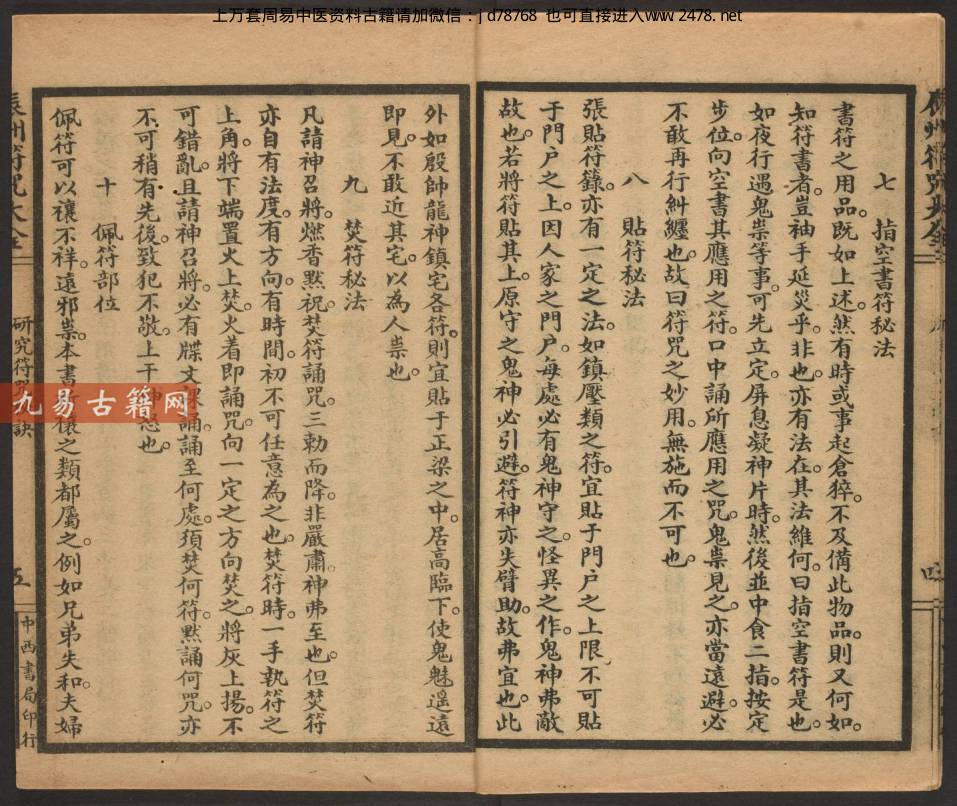 上万套周易中医资料古籍请加微信：| d78768 也可直接进入www 2478. net
七 指空書符秘法
書符之用品。既如上述。然有時或事起倉猝。不及備此物品。則又何如。
知符書者。豈袖手延災乎。非也。亦有法在。其法維何。曰指空書符是也。
如夜行遇鬼祟等事。可先立定。屏息凝神片時。然後並中食二指。按定
步位。向空書其應用之符。口中誦所應用之咒。鬼祟見之。亦當遠避。必
不敢再行糾纏也。故曰符咒之妙用。無施而不可也。
八 貼符秘法
張貼符籙。亦有一定之法。如鎮壓類之符。宜貼于門戶之上限。不可貼
于門戶之上。因人家之門戶。每處必有鬼神守之。怪異之作。鬼神弗敵
故也。若將符貼其上。原守之鬼神必引避。符神亦失臂助。故弗宜也。此
外如殷帥龍神鎮宅各符。則宜貼于正梁之中。居高臨下。使鬼魅遥遠
即見。不敢近其宅。以為人祟也。
九 焚符秘法
凡請神召將。燃香黙祝。焚符誦咒。三勅而降。非嚴肅。神弗至也。但焚符
亦自有法度。有方向。有時間。初不可任意為之也。焚符時。一手執符之
上角。將下端置火上焚。火着即誦咒。向一定之方向焚之。將灰上揚。不
可錯亂。且請神召將。必有牒文 誦。誦至何處。須焚何符。黙誦何咒。亦
不可稍有先後。致犯不敬。上干 也。
十 佩符部位
佩符可以禳不祥。遠邪祟。本書 之類都屬之。例如兄弟失和。夫婦
研究符咒 訣
五
中西書局印行
九易古籍网